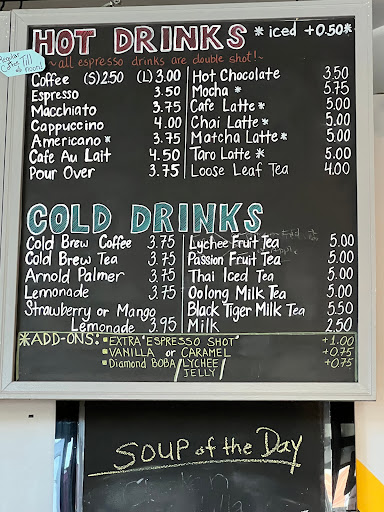 HOT DRINKS * iced +0.50*
~all espresso drinks are double shot!~
Coffee (S)2.50 (L)3.00
Espresso 3.50
Macchiato 3.75
Cappuccino 4.00
Americano* 3.75
Cafe Au Lait 4.50
Pour Over 3.75
Hot Chocolate 3.50
Mocha * 5.75
Cafe Latte* 5.00
Chai Latte* 5.00
Matcha Latte* 5.00
Taro Latte * 5.00
Loose Leaf Tea 4.00
COLD DRINKS
Cold Brew Coffee 3.75
Cold Brew Tea 3.75
Arnold Palmer 3.75
Lemonade 3.75
Strawberry or Mango
Lemonade 3.95
Lychee Fruit Tea 5.00
Passion Fruit Tea 5.00
Thai Iced Tea 5.00
Oolong Milk Tea 5.00
Black Tiger Milk Tea 5.50
Milk 2.50
*ADD-ONS: EXTRA "ESPRESSO SHOT" +1.00
VANILLA or CARAMEL +0.75
Diamond BOBA/LYCHEE JELLY/ +0.75
SOUP of the Day